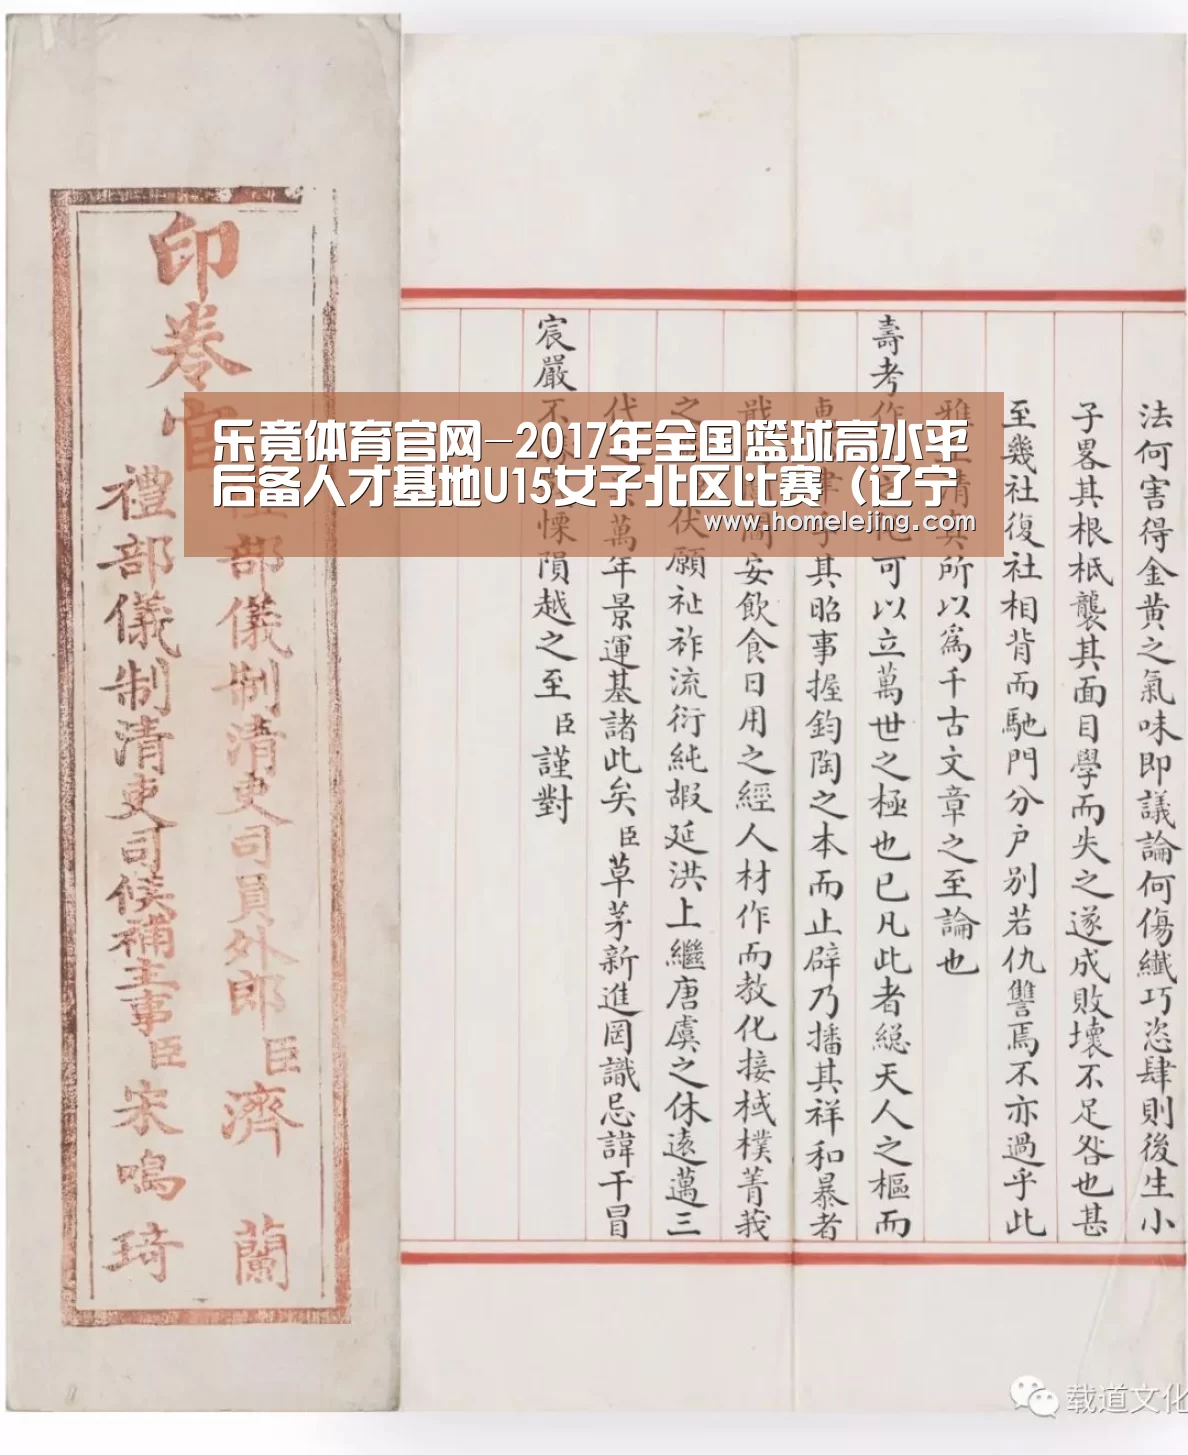 法何害得金黃之氣味即議論何傷纖巧恣肆則後生小
子畧其根柢襲其面目學而失之遂成敗壞不足咎也甚
至幾社復社相背而馳門分户别若仇讐焉不亦過乎此
所以爲千古文章之至論也
壽考作
可以立萬世之極也已凡此者緫天人之樞而
其昭事握鈞陶之本而止辟乃播其祥和暴者
安飲食日用之經人材作而教化接棫樸菁莪
之
伏願祉祚流衍純嘏延洪上繼唐虞之休遠邁三
代
萬年景運基諸此矣臣草茅新進罔識忌諱干冒
宸嚴不
慄隕越之至臣謹對
印卷官
部儀制清吏司員外郎臣濟蘭
禮部儀制清吏司候補主事臣宋鳴琦
乐竟体育官网-2017年全国篮球高水平
后备人才基地U15女子北区比赛（辽宁
www.homelejing.com
载道文化